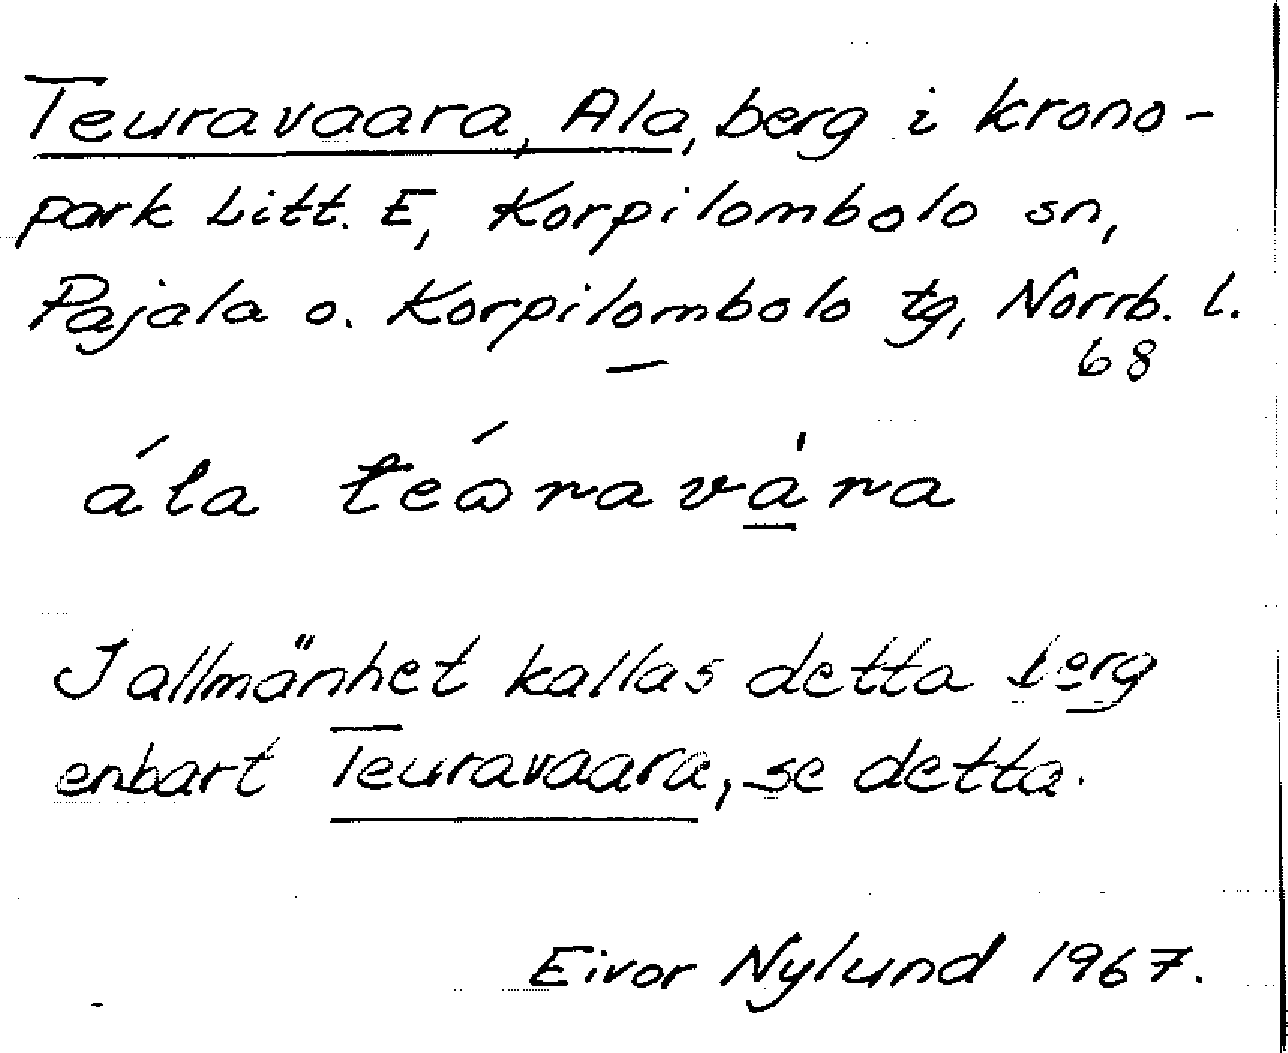 Teuravaara, Ala, berg i krono-
park Litt. E, Korpilombolo sn,
Pajala o. Korpilombolo tg, Norrb. l.
68
ála teáravàra
I allmänhet kallas detta berg
enbart Teuravaara, se detta.
Eivor Nylund 1967.